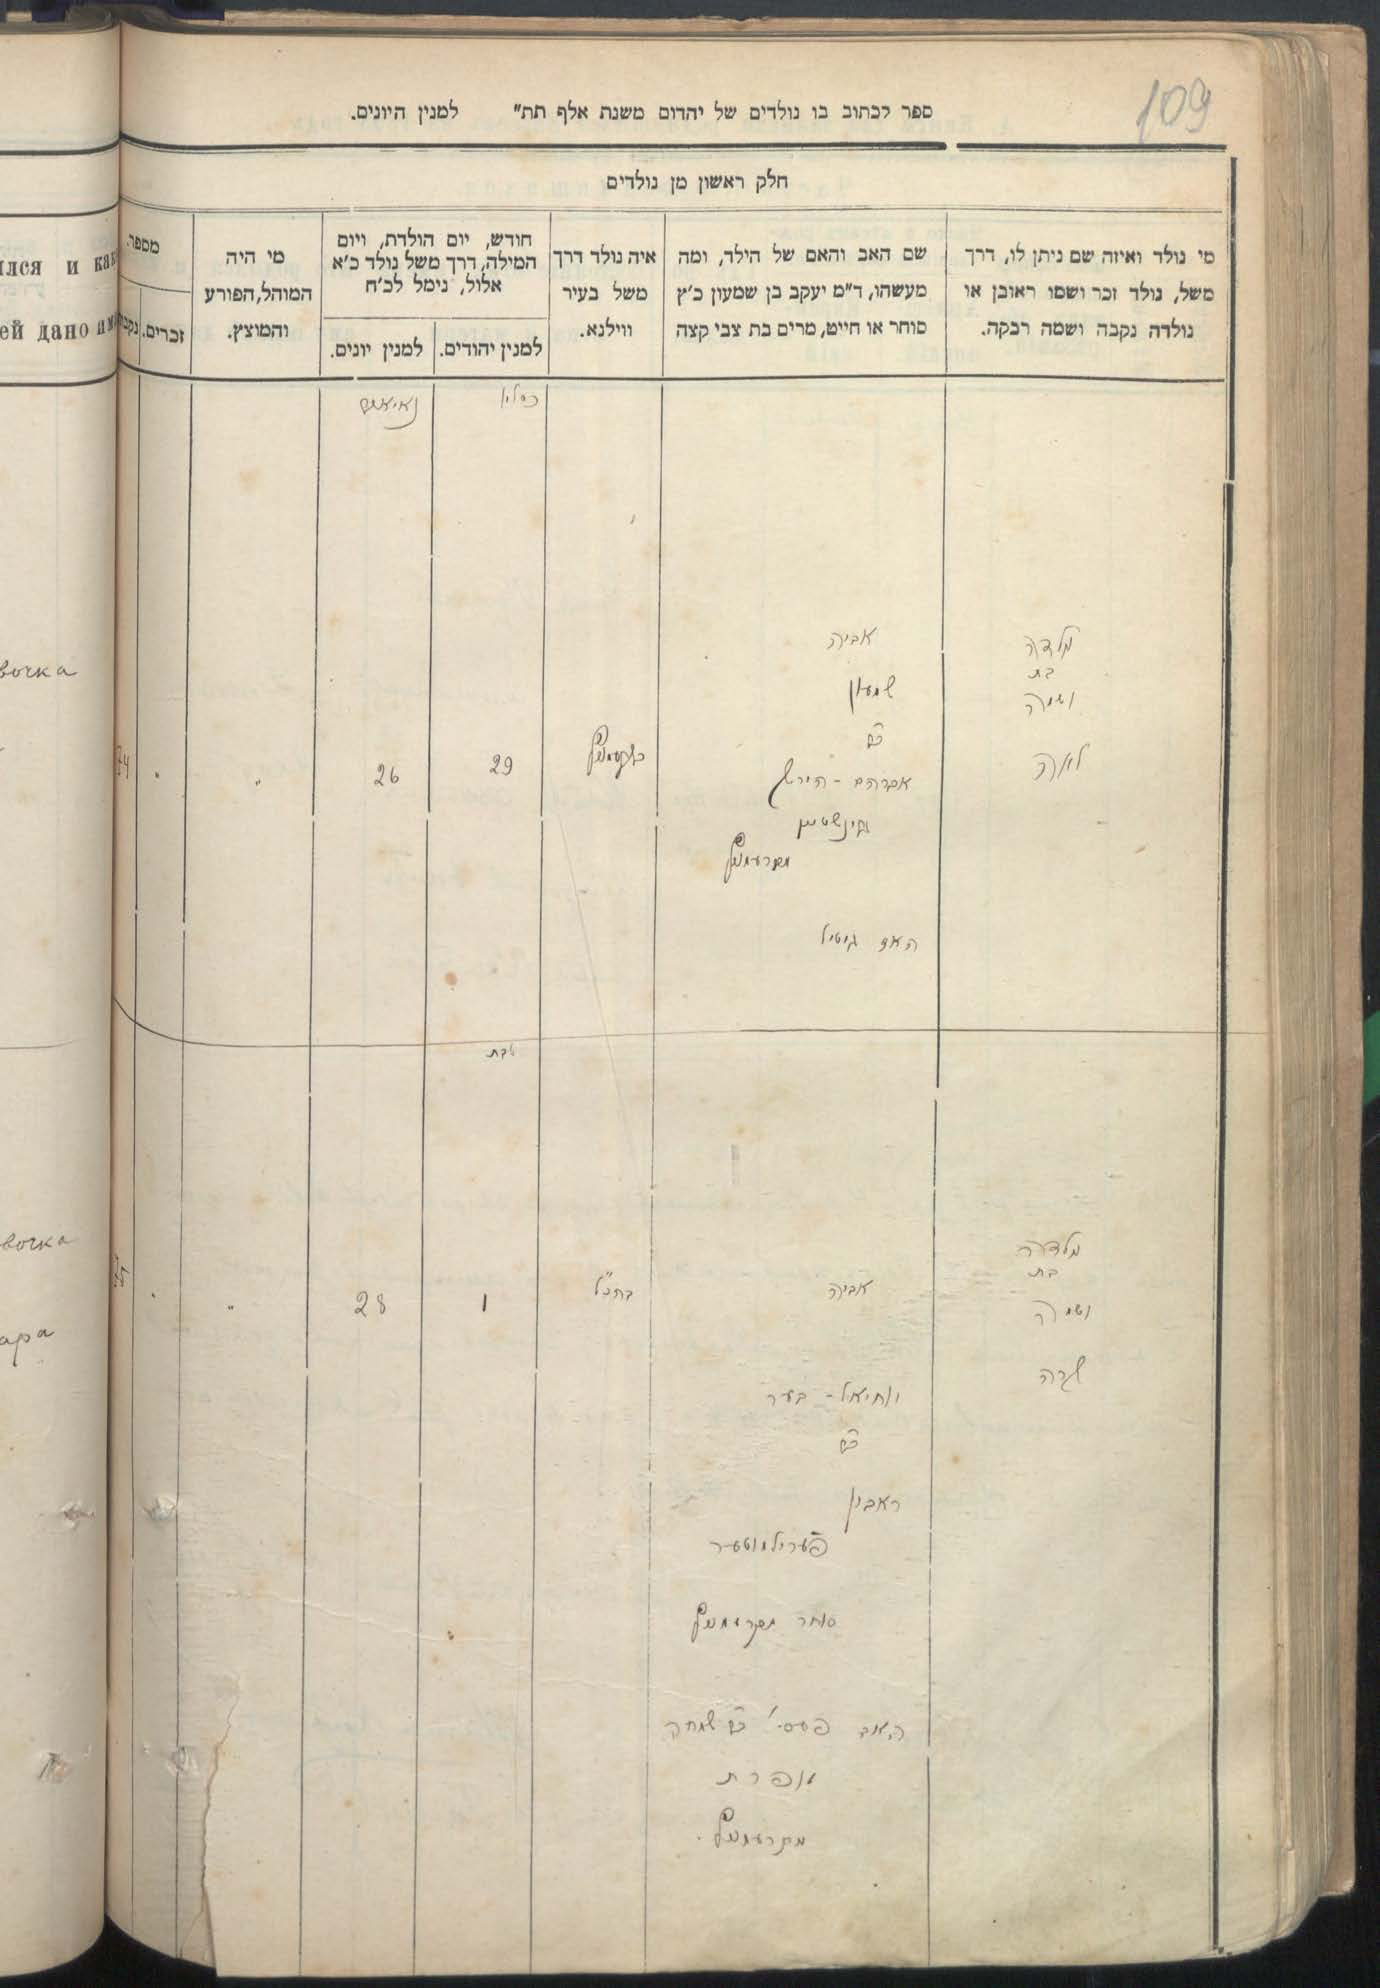 109
ספר לכתוב בו נולדים של יהדום משנת אלף תת״ למנין היונים.
חלק ראשון מן נולדים
מי נולד ואיזה שם ניתן לו, דרך
משל, נולד זכר ושמו ראובן או
נולדה נקבה ושמה רבקה.
שם האב והאם של הילד, ומה
מעשהו, ד״מ יעקב בן שמעון כ׳ץ
סוחר או חייט, מרים בת צבי קצה
איה נולד דרך
משל בעיר
ווילנא.
חודש, יום הולדת, ויום
המילה, דרך משל נולד כ׳א
אלול, נימל לכ׳ח
למנין יהודים.
למנין יונים.
מי היה
המוהל, הפורע
והמוצץ.
מספר.
זכרים.
ился и как
ей дано им
כסליו
נאיאבר
נולדה
בת
ושמה
לאה
אביה
שמעון
אברהם - הירש
האם גיטיל
29
26
вочка
טבת
נולדה
בת
ושמה
שרה
אביה
יחיאל - בער
ראובן
פערילמוטער
סוחר
שמחה
בהנ״ל
1
28
вочка
ара